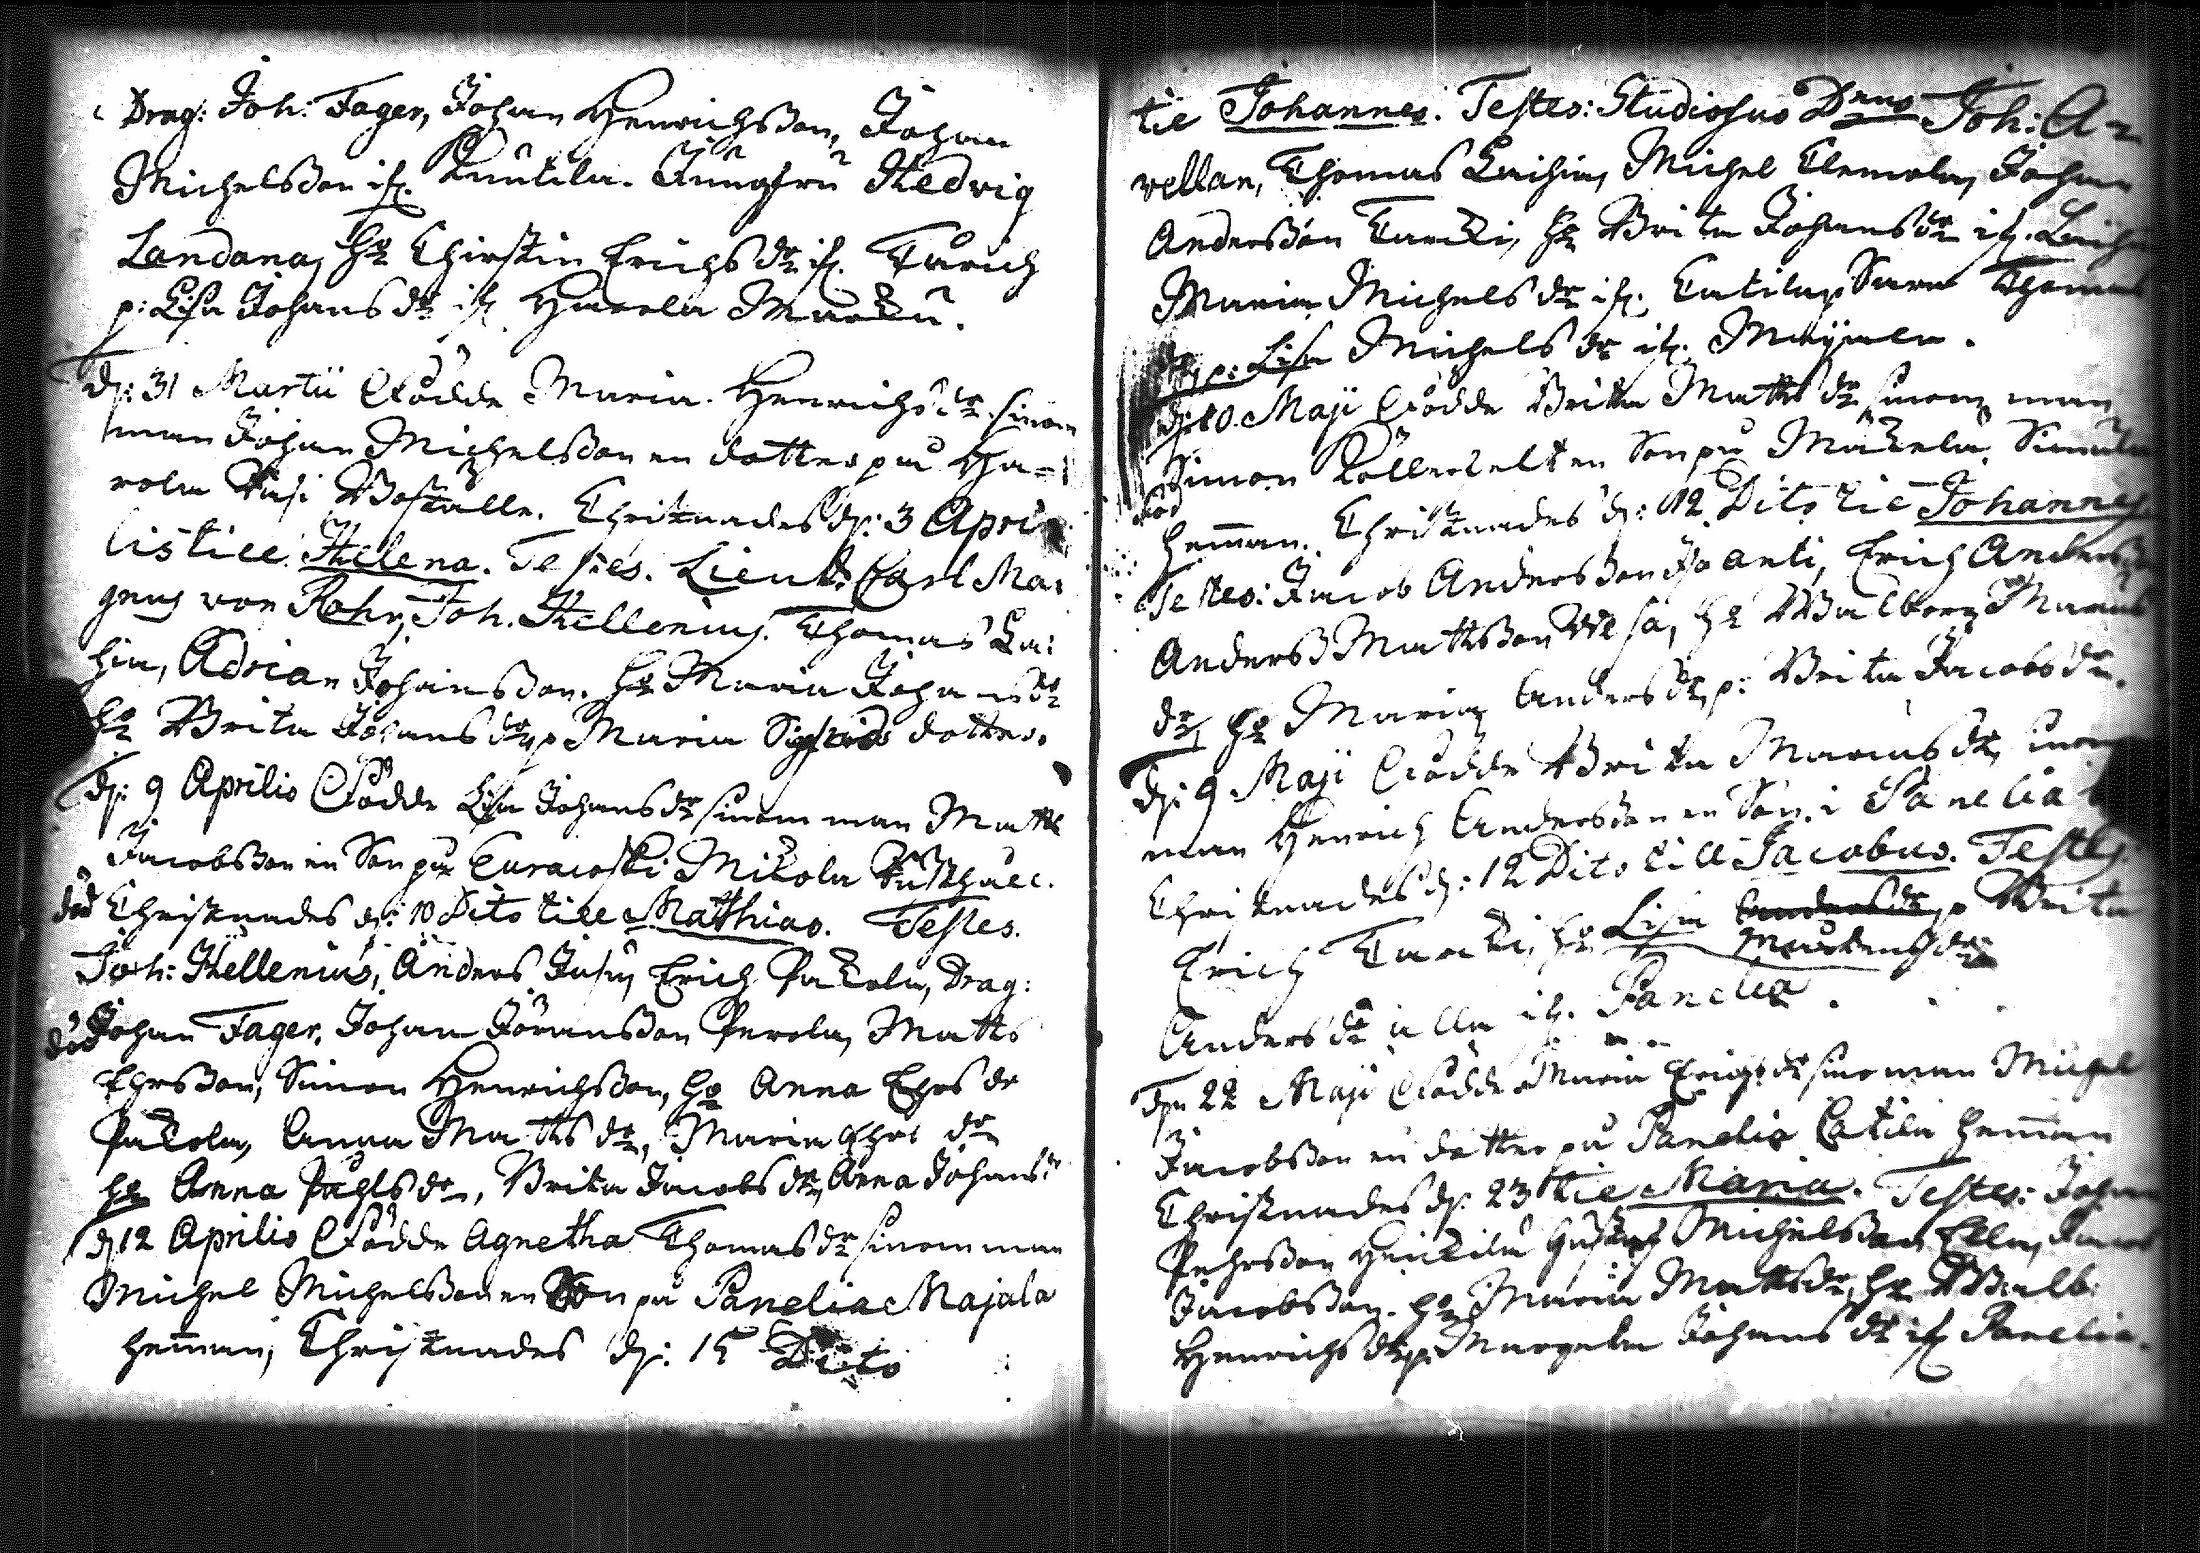 Drag: Joh: Fager, Johan Henrichsson, Johan
Michelsson if. Knutila. Jungfru Hedvig
Landana, h: Chirstin Erichs dr if. Turich
p: Lisa Johans dr if Harola Marku.
d: 31 Martii Födde Maria Henrichs dr sinom
man Johan Michelsson en dotter på Ha-
rola Boställe. Christnades d: 3 Apri
lis till Helena. Testes. Lieut: Carl Ma:
gnus von Rohr, Joh. Hellenius. Thomas La:
hin, Adrian Johansson. h: Maria Johans dr
h: Brita Johans dr p Maria Sigfrids dotter.
d: 9 Aprilis Födde Lisa Johans dr sinom man Matts
Jacobsson en Son på Euracoski Mikola
död Christnades d: 10 Dito till Matthias. Testes.
Joh: Hellenius, Anders Erich Pakola, Drag:
död Johan Fager, Johan Jöransson Perola, Matts
Ehrsson, Simon Henrichsson, h: Anna Ehrs dr
Pakola, Anna Matts dr, Maria Ehrs dr
h: Anna Påhls dr, Brita Jacobs dr, Anna Johans dr
d. 12 Aprilis Födde Agnetha Thomas dr sinom man
Michel Michelsson en Son på Panelia Majala
heman, Christnades d: 15 Dito
til Johannes. Testes: Studiosus Dnus Joh: A-
vellan, Thomas Laihia, Michel Clemola, Johan
Andersson Tarcki, h: Brita Johans dr if. Laih
Maria Michels dr if. Catila, Sara Thomas
dr p: Lisa Michels dr if. Maijala.
d: 10. Maji Födde Brita Matts dr sinom man
Simon en Son på Mäkelä
död heman. Christnades d: 12 Dito til Johannes
Testes: Jacob Andersson Erich Anders
Anders Mattsson Wesa, h: Walborg
dr, h: Maria Anders dr, p: Brita Jacobs dr.
d: 9 Maji Födde Brita Marcus dr, sinom
man Henrich Andersson en Son i Panelia
Christnades d: 12 Dito till Jacobus. Testes
Erich Tarcki, h: Lisa Anders dr p Brita
Mårtens dr
Anders dr alla if. Panelia.
d: 22 Maji Födde Maria Erichs dr sino man Michel
Jacobsson en dotter på Panelia Catila heman
Christnades d: 23 til Maria. Testes: Johan
Pehrsson Heickilä Gustaf Michelsson Jacob
Jacobsson. h: Maria Matts dr, h: Walb:
Henrichs dr p. Margeta Johans dr if Panelia.